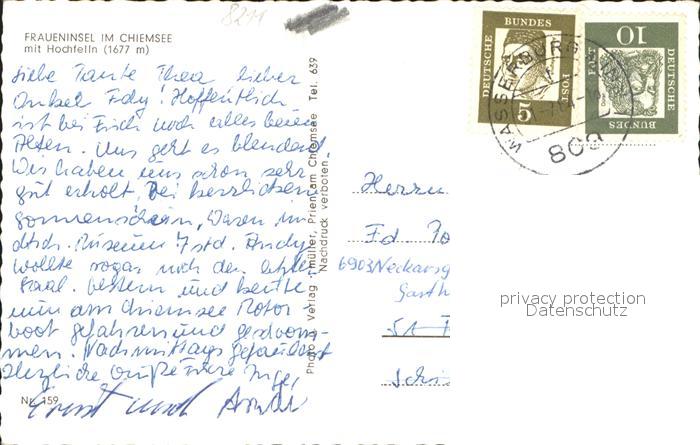 8211
FRAUENINSEL IM CHIEMSEE
mit Hochfelln (1677 m)
Liebe Tante Thea lieber
Onkel Edy! Hoffentlich
ist bei Euch noch alles beim
Alten. Uns geht es blendend
Wir haben uns schon sehr
gut erholt, bei herrlichem
Sonnenschein, Waren im
dtsch. Museum 7 Std. Andy
wollte sogar noch den letzten
Saal. Gestern und heute
am Chiemsee Motor-
boot gefahren und geschwom-
men. Nachmittags gefaulenzt
Herzliche Grüße Eure Inge,
Ernst und
Nr. 159
Photo u. Verlag Prien am Chiemsee Tel. 639
Nachdruck verboten
DEUTSCHE BUNDES POST
5
DEUTSCHE BUNDES POST
10
WASSERBURG
809
Herrn
Fd
6903 Neckarg
Gasth
privacy protection
Datenschutz